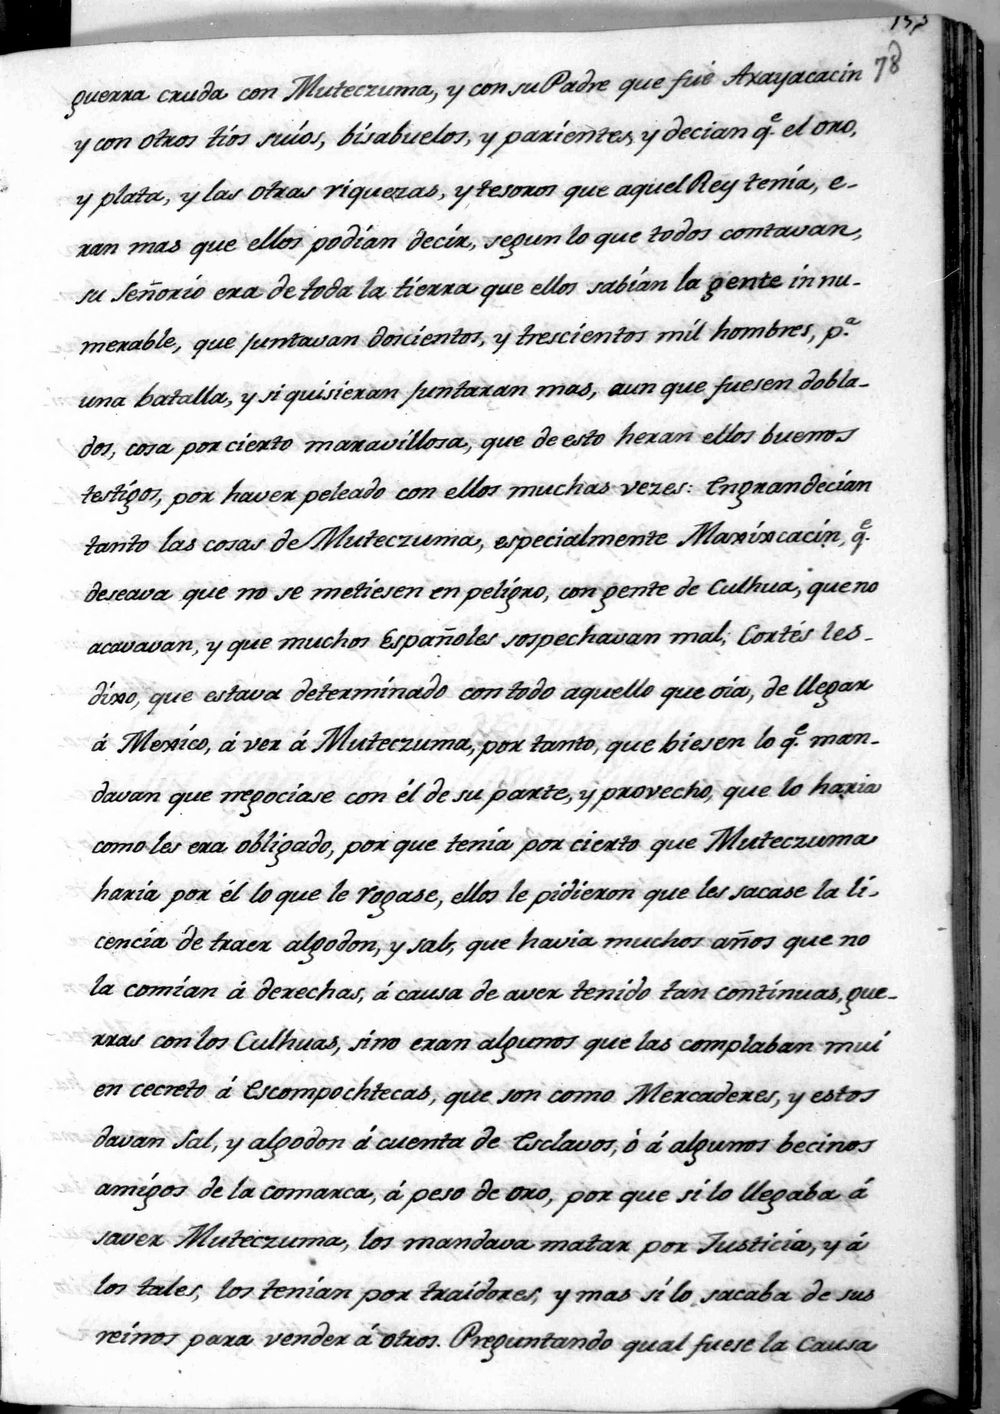 78
guerra cruda con Muteczuma, y con su Padre que fué Axayacacin
y con otros tíos suíos, bisabuelos, y parientes, y decian q.e el oro,
y plata, y las otras riquezas, y tesoros que aquel Rey tenía, e-
ran mas que ellos podían decír, segun lo que todos contavan,
su Señorío era de toda la tíerra que ellos sabían la gente innu-
merable, que juntavan doscientos, y trescientos mil hombres, p.a
una batalla, y si quisieran juntaran mas, aun que fuesen dobla-
dos, cosa por cierto maravillosa, que de esto heran ellos buenos
testígos, por haver peleado con ellos muchas vezes: Engrandecían
tanto las cosas de Muteczuma, especialmente Maxíxcacín, q.e
deseava que no se metiesen en pelígro, con gente de Culhua, que no
acavavan, y que muchos Españoles sospechavan mal, Cortés les-
díxo, que estava determinado con todo aquello que oía, de llegar
á Mexíco, á ver á Muteczuma, por tanto, que biesen lo q.e man-
davan que negocíase con él de su parte, y provecho, que lo haria
como les era obligado, por que tenía por cierto que Muteczuma
haría por él lo que le rogase, ellos le pidieron que les sacase la li-
cencía de traer algodon, y sal, que havia muchos años que no
la comían á derechas, á causa de aver tenido tan contínuas, gue-
rras con los Culhuas, sino eran algunos que las complaban muí
en cecreto á Escompochtecas, que son como Mercaderes, y estos
davan Sal, y algodon á cuenta de Esclavos, ò á algunos becinos
amígos de la comarca, á peso de oro, por que si lo llegaba á
saver Muteczuma, los mandava matar por Justicia, y á
los tales, los tenían por traídores, y mas sí lo sacaba de sus
reínos para vender á otros. Preguntando qual fuese la causa